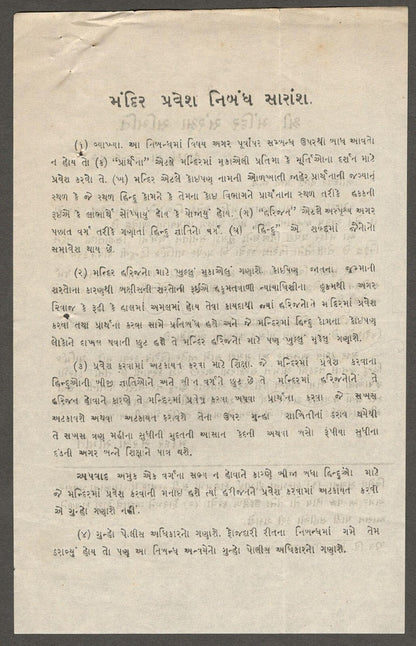 મંદિર પ્રવેશ નિબંધ સારાંશ.
(૧) વ્યાખ્યા. આ નિબન્ધમાં વિષય અગર પૂર્વાપર સમ્બન્ધ ઉપરથી બાધ આવતો
ન હોય તો (ક) "પ્રાર્થના" એટલે મન્દિરમાં મુકાએલી પ્રતિમા કે મૂર્તિઓના દર્શન માટે
પ્રવેશ કરવો તે. (ખ) મન્દિર એટલે કોઇપણ નામની ઓળખાતી જાહેર પ્રાર્થનાની જગ્યાનું
સ્થળ કે જે સ્થળ હિન્દુ કોમને કે તેમના કોઇ વિભાગને પ્રાર્થનાના સ્થળ તરીકે હકકની
રૂઈએ કે લાભાર્થે સોંપાયું હોય કે યોજાયું હોય. (ગ) "હરિજન" એટલે અસ્પૃશ્ય અગર
પછાત વર્ગ તરીકે ગણાતાં હિન્દુ જ્ઞાતિનો વર્ગ. (ઘ) "હિન્દુ" એ શબ્દમાં જૈનોનો
સમાવેશ થાય છે.
(૨) મન્દિર હરિજનો માટે ખુલ્લું મુકાએલું ગણાશે. કોઇપણ જાતના જુમ્માની
શરતોના કારણથી બક્ષીસની શરતોની રૂઈએ હકુમતવાળી ન્યાયાધિશીના હુકમથી અગર
રિવાજ કે રૂઢી કે હાલમાં અમલમાં હોય તેવા કાયદાથી જ્યાં હરિજનોને મંદિરમાં પ્રવેશ
કરવા તથા પ્રાર્થના કરવા સામે પ્રતિબંધ હશે અને જે મન્દિરમાં હિન્દુ કોમના કોઇપણ
લોકોને દાખલ થવાની છુટ હશે તે મન્દિર હરિજનો માટે પણ ખુલ્લું મુકેલું ગણાશે.
(૩) પ્રવેશ કરવામાં અટકાયત કરવા માટે શિક્ષા. જે મન્દિરમાં પ્રવેશ કરવાના
હિન્દુઓની બીજી જ્ઞાતિઓને અને બીજા વર્ગને છુટ છે તે મન્દિરમાં હરિજનોને તે
હરિજન હોવાને કારણે તે મન્દિરમાં પ્રવેશ કરવા અથવા પ્રાર્થના કરવા જે સખસ
અટકાવશે અથવા અટકાયત કરાવશે તેના ઉપર ગુન્હા શાબિતીનાં ઠરાવ થયેથી
તે સખસ ત્રણ મહીના સુધીની મુદતની આસાન કેદની અથવા બસો રૂપીયા સુધીના
દંડની અગર બન્ને શિક્ષાને પાત્ર થશે.
અપવાદ અમુક એક વર્ગના સભ્ય ન હોવાને કારણે બીજા બધા હિન્દુઓ માટે
જે મન્દિરમાં પ્રવેશ કરવાની મનાઇ હશે ત્યાં હરીજનને પ્રવેશ કરવામાં અટકાયત કરવી
એ ગુન્હો ગણાશે નહીં.
(૪) ગુન્હો પોલીસ અધિકારનો ગણાશે. ફોજદારી રીતના નિબન્ધમાં ગમે તેમ
ઠરાવ્યું હોય તો પણ આ નિબન્ધ અન્વયેનો ગુન્હો પોલીસ અધિકારનો ગણાશે.